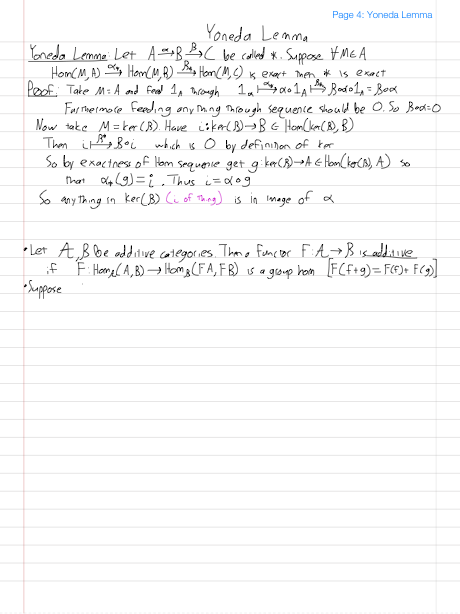 Page 4: Yoneda Lemma
Yoneda Lemma
Yoneda Lemma: Let A →α B →β C be called *. Suppose ∀M∈A
Hom(M,A) →α* Hom(M,B) →β* Hom(M,C) is exact then * is exact
Proof: Take M=A and feed 1_A through 1_A ↦α* α∘1_A ↦β* β∘α∘1_A = β∘α
Furthermore feeding anything through sequence should be 0. So β∘α=0
Now take M=ker(β). Have i: ker(β)→B ∈ Hom(ker(β),B)
Then i ↦β* β∘i which is 0 by definition of ker
So by exactness of Hom sequence get g: ker(β)→A ∈ Hom(ker(β),A) so
that α*(g)=i. Thus i=α∘g
So anything in ker(β) (i of thing) is in image of α
• Let A, B be additive categories. Then a functor F: A→B is additive
if F: Hom_A(A,B) → Hom_B(FA,FB) is a group hom [F(f+g)=F(f)+F(g)]
• Suppose